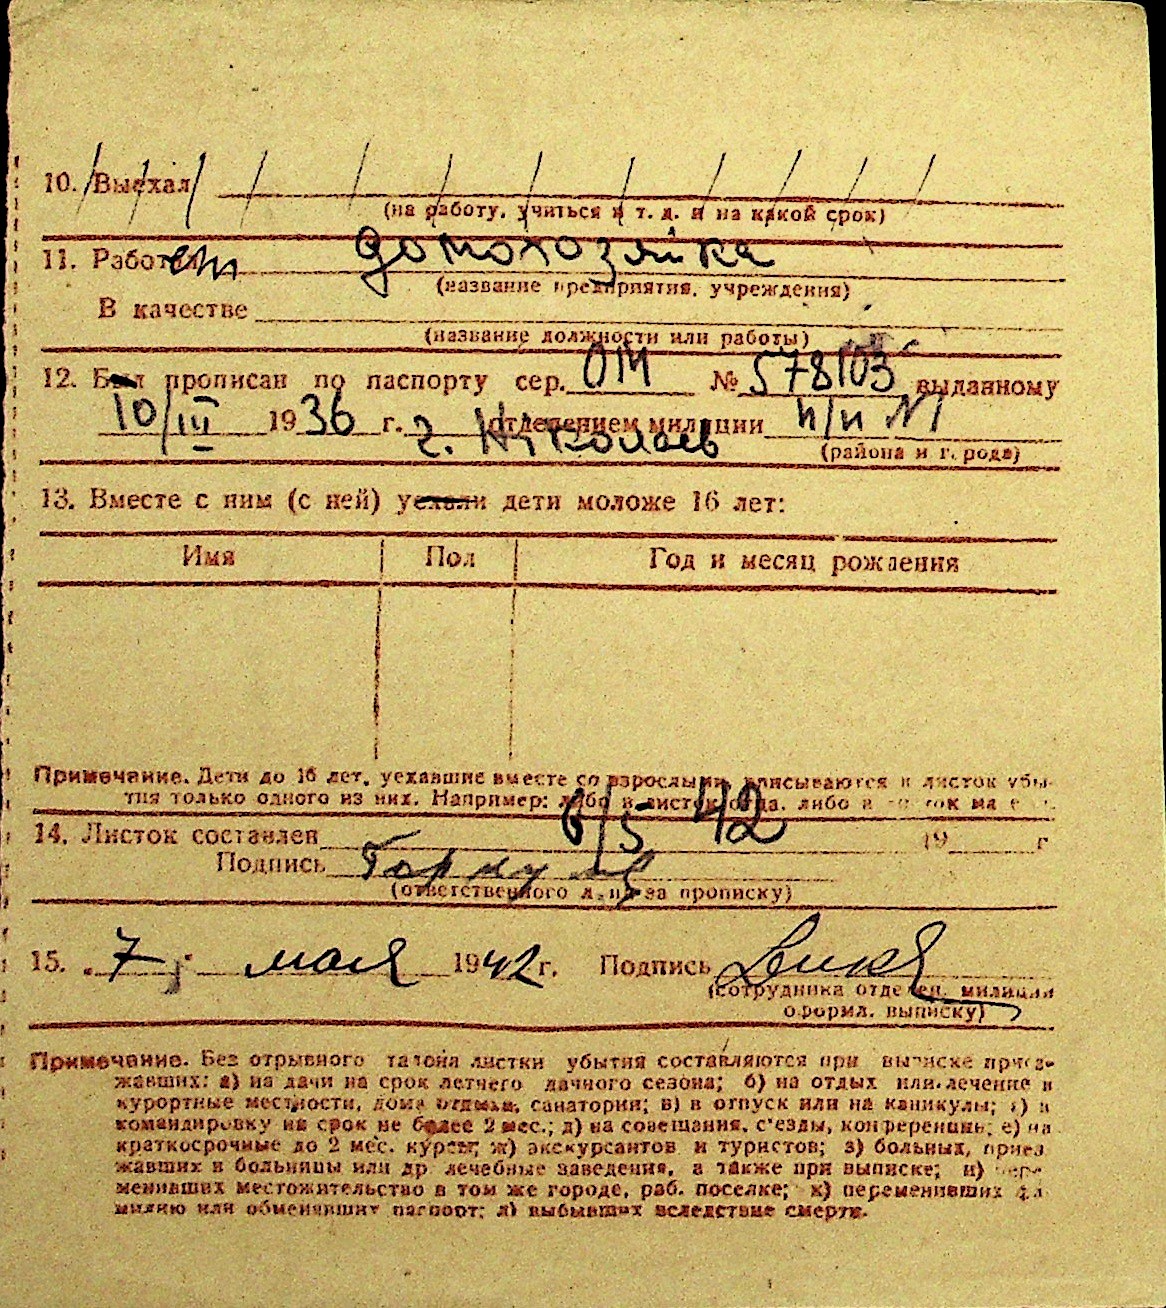 10. Выехал
(на работу, учиться и т. д. и на какой срок)
11. Работает домохозяйка
(название предприятия, учреждения)
В качестве
(название должности или работы)
12. Был прописан по паспорту сер. ОМ № 578103 выданному
10/III 1936 г. г. Николаев отделением милиции №1
(района и города)
13. Вместе с ним (с ней) уехали дети моложе 16 лет:
Имя Пол Год и месяц рождения
Примечание. Дети до 16 лет, уехавшие вместе со взрослыми, вписываются в листок убы-
тия только одного из них. Например: либо в листок отца, либо в листок матери.
14. Листок составлен 6/5 42 19 г
Подпись
(ответственного лица за прописку)
15. 7 мая 1942 г. Подпись
(сотрудника отделен. милиции
оформл. выписку)
Примечание. Без отрывного талона листки убытия составляются при выписке приез-
жавших: а) на дачи на срок летнего дачного сезона; б) на отдых или лечение в
курортные местности, дома отдыха, санатории; в) в отпуск или на каникулы; г) в
командировку на срок не более 2 мес.; д) на совещания, с'езды, конференции; е) на
краткосрочные до 2 мес. курсы; ж) экскурсантов и туристов; з) больных, приез
жавших в больницы или др лечебные заведения, а также при выписке; и) пере-
менивших местожительство в том же городе, раб. поселке; к) переменивших фа
милию или обменявших паспорт; л) выбывших вследствие смерти.